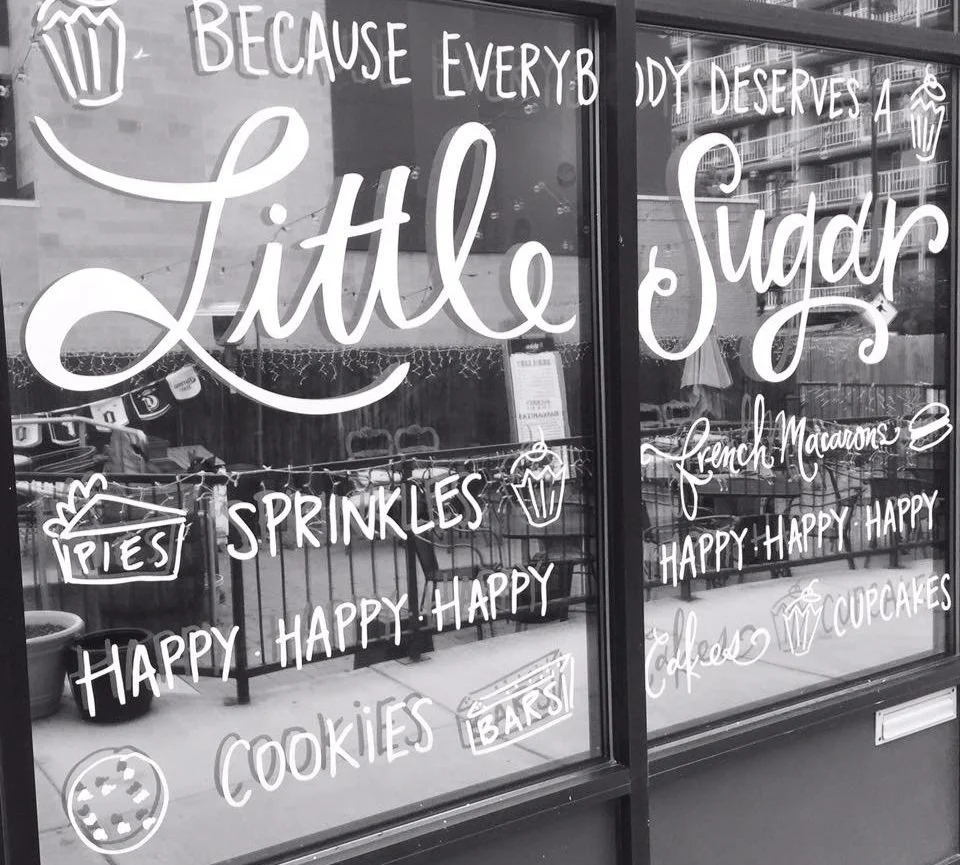 BECAUSE EVERYBODY DESERVES A
Little Sugar
French Macarons
PIES SPRINKLES
HAPPY · HAPPY · HAPPY
HAPPY · HAPPY · HAPPY
COOKiES BARS
Cakes CUPCAKES